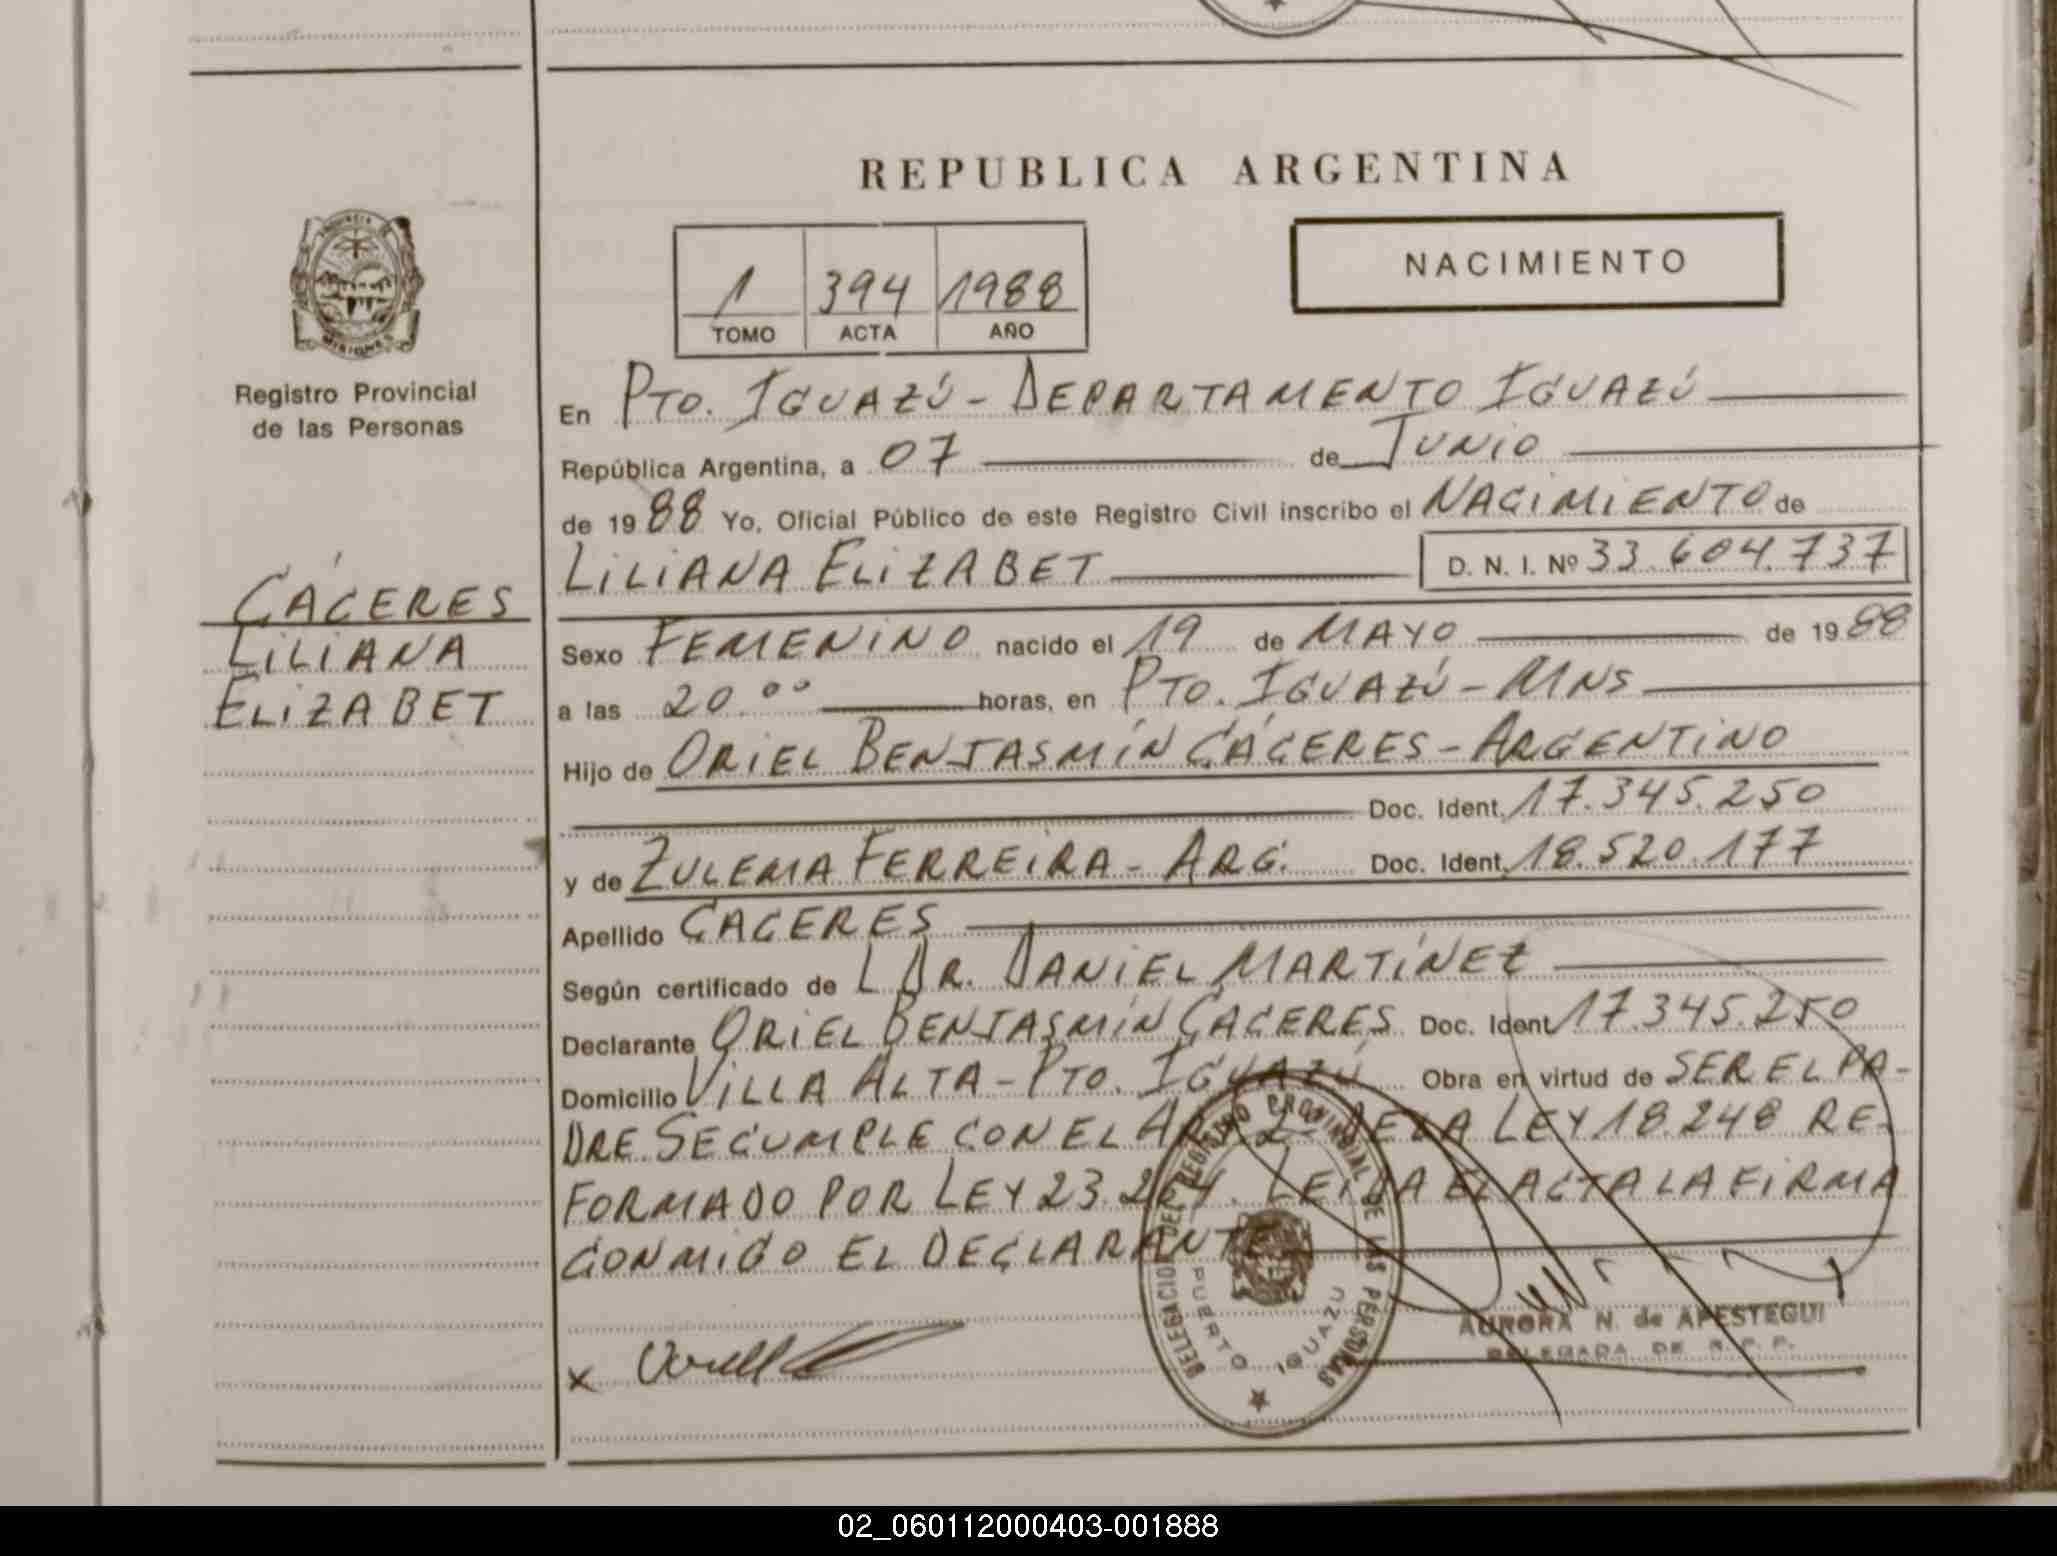 REPUBLICA ARGENTINA
PROVINCIA DE
MISIONES
Registro Provincial
de las Personas
1 394 1988
TOMO ACTA AÑO
NACIMIENTO
En PTO. IGUAZÚ - DEPARTAMENTO IGUAZÚ
República Argentina, a 07 de JUNIO
de 1988 Yo, Oficial Público de este Registro Civil inscribo el NACIMIENTO de
LILIANA ELIZABET D. N. I. Nº 33.604.737
CÁCERES
LILIANA
ELIZABET
Sexo FEMENINO nacido el 19 de MAYO de 1988
a las 20.°° horas, en PTO. IGUAZÚ - MNS
Hijo de ORIEL BENJASMÍN CÁCERES - ARGENTINO
Doc. Ident. 17.345.250
y de ZULEMA FERREIRA - ARG. Doc. Ident. 18.520.177
Apellido CACERES
Según certificado de L DR. DANIEL MARTÍNEZ
Declarante ORIEL BENJASMÍN CÁCERES Doc. Ident 17.345.250
Domicilio VILLA ALTA - PTO. IGUAZÚ Obra en virtud de SER EL PA-
DRE. SE CUMPLE CON EL ART 2- DE LA LEY 18.248 RE-
FORMADO POR LEY 23.264. LEIDA EL ACTA LA FIRMA
CONMIGO EL DECLARANTE
DELEGACION DEL REGISTRO PROVINCIAL DE LAS PERSONAS
PUERTO IGUAZU
X
AURORA N. de APESTEGUI
DELEGADA DE R. P. P.
02_060112000403-001888